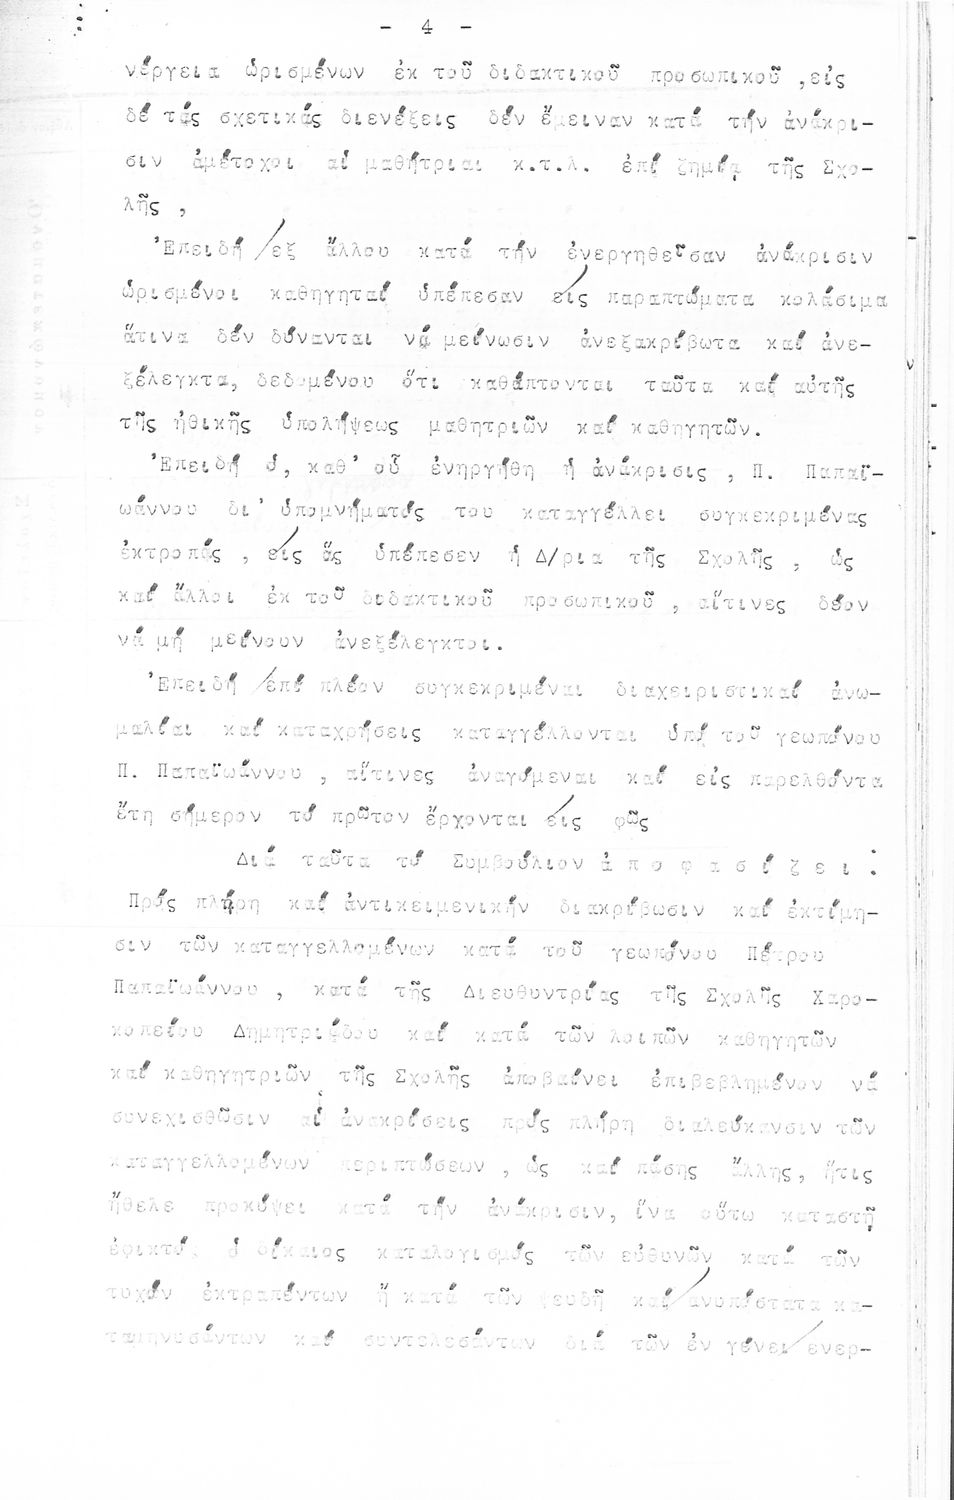 - 4 -
νέργεια ὡρισμένων ἐκ τοῦ διδακτικοῦ προσωπικοῦ ,εἰς
δέ τάς σχετικάς διενέξεις δέν ἔμειναν κατά τήν ἀνάκρι-
σιν ἀμέτοχοι αἱ μαθήτριαι κ.τ.λ. ἐπί ζημίᾳ τῆς Σχο-
λῆς ,
Ἐπειδή ἐξ ἄλλου κατά τήν ἐνεργηθεῖσαν ἀνάκρισιν
ὡρισμένοι καθηγηταί ὑπέπεσαν εἰς παραπτώματα κολάσιμα
ἅτινα δέν δύνανται νά μείνωσιν ἀνεξακρίβωτα καί ἀνε-
ξέλεγκτα, δεδομένου ὅτι καθάπτονται ταῦτα καί αὐτῆς
τῆς ἠθικῆς ὑπολήψεως μαθητριῶν καί καθηγητῶν.
Ἐπειδή ὁ, καθ' οὗ ἐνηργήθη ἡ ἀνάκρισις , Π. Παπαϊ-
ωάννου δι' ὑπομνήματός του καταγγέλλει συγκεκριμένας
ἐκτροπάς , εἰς ἅς ὑπέπεσεν ἡ Δ/ρια τῆς Σχολῆς , ὡς
καί ἄλλοι ἐκ τοῦ διδακτικοῦ προσωπικοῦ , αἵτινες δέον
νά μή μείνουν ἀνεξέλεγκτοι.
Ἐπειδή ἐπί πλέον συγκεκριμέναι διαχειριστικαί ἀνω-
μαλίαι καί καταχρήσεις καταγγέλλονται ὑπό τοῦ γεωπόνου
Π. Παπαϊωάννου , αἵτινες ἀναγόμεναι καί εἰς παρελθόντα
ἔτη σήμερον τό πρῶτον ἔρχονται εἰς φῶς
Διά ταῦτα τό Συμβούλιον ἀ π ο φ α σ ί ζ ε ι :
Πρός πλήρη καί ἀντικειμενικήν διακρίβωσιν καί ἐκτίμη-
σιν τῶν καταγγελλομένων κατά τοῦ γεωπόνου Πέτρου
Παπαϊωάννου , κατά τῆς Διευθυντρίας τῆς Σχολῆς Χαρο-
κοπείου Δημητριάδου καί κατά τῶν λοιπῶν καθηγητῶν
καί καθηγητριῶν τῆς Σχολῆς ἀποβαίνει ἐπιβεβλημένον νά
συνεχισθῶσιν αἱ ἀνακρίσεις πρός πλήρη διαλεύκανσιν τῶν
καταγγελλομένων περιπτώσεων , ὡς καί πάσης ἄλλης, ἥτις
ἤθελε προκύψει κατά τήν ἀνάκρισιν, ἵνα οὕτω καταστῇ
ἐφικτός ὁ δίκαιος καταλογισμός τῶν εὐθυνῶν κατά τῶν
τυχόν ἐκτραπέντων ἤ κατά τῶν ψευδῆ καί ἀνυπόστατα κα-
ταμηνυσάντων καί συντελεσάντων διά τῶν ἐν γένει ἐνερ-